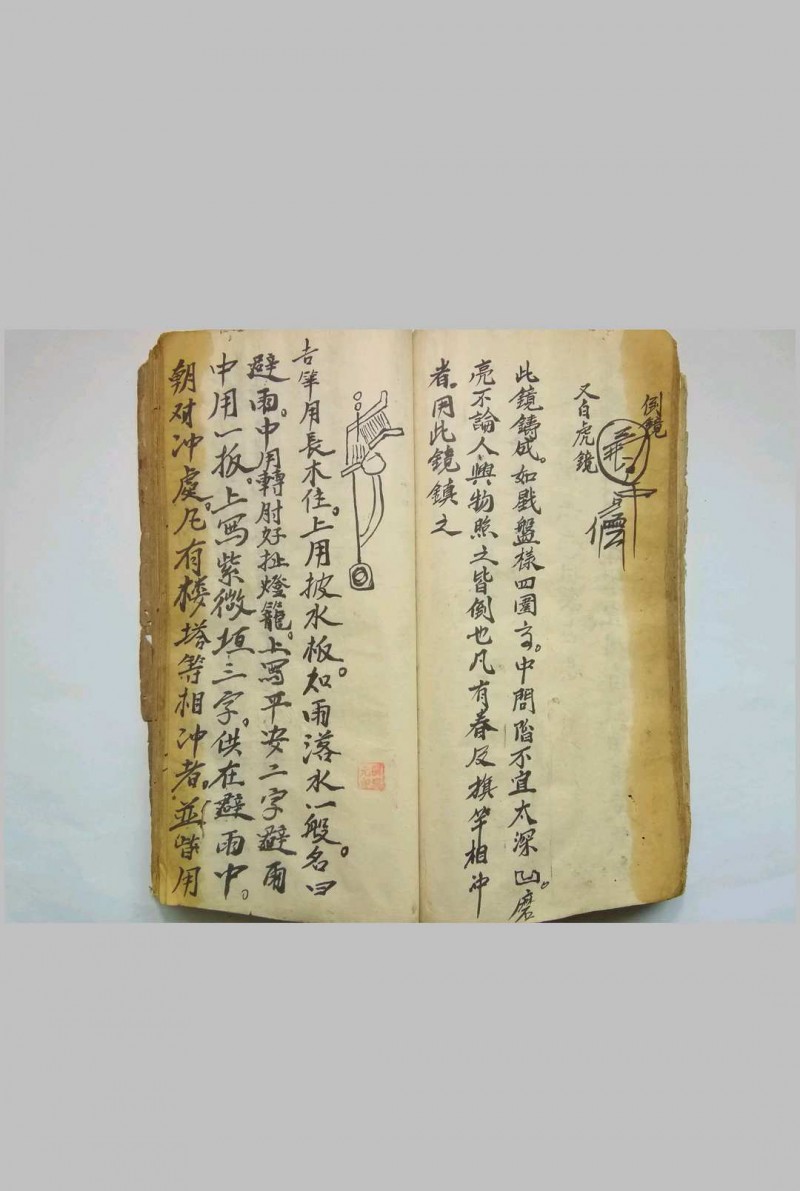 倒鏡
又白虎鏡
此鏡鑄成。如戲盤樣四圍高。中間陷不宜太深凹。磨
亮不論人與物照之皆倒也凡有春反旗竿相冲
者。用此鏡鎮之
吉竿用長木住。上用披水板如雨落水一般名曰
避雨。中用轉肘好扯燈籠。上寫平安二字避雨
中用一扳。上寫紫微垣三字。供在避雨中。
朝对冲處。凡有楼塔等相冲者。並皆用